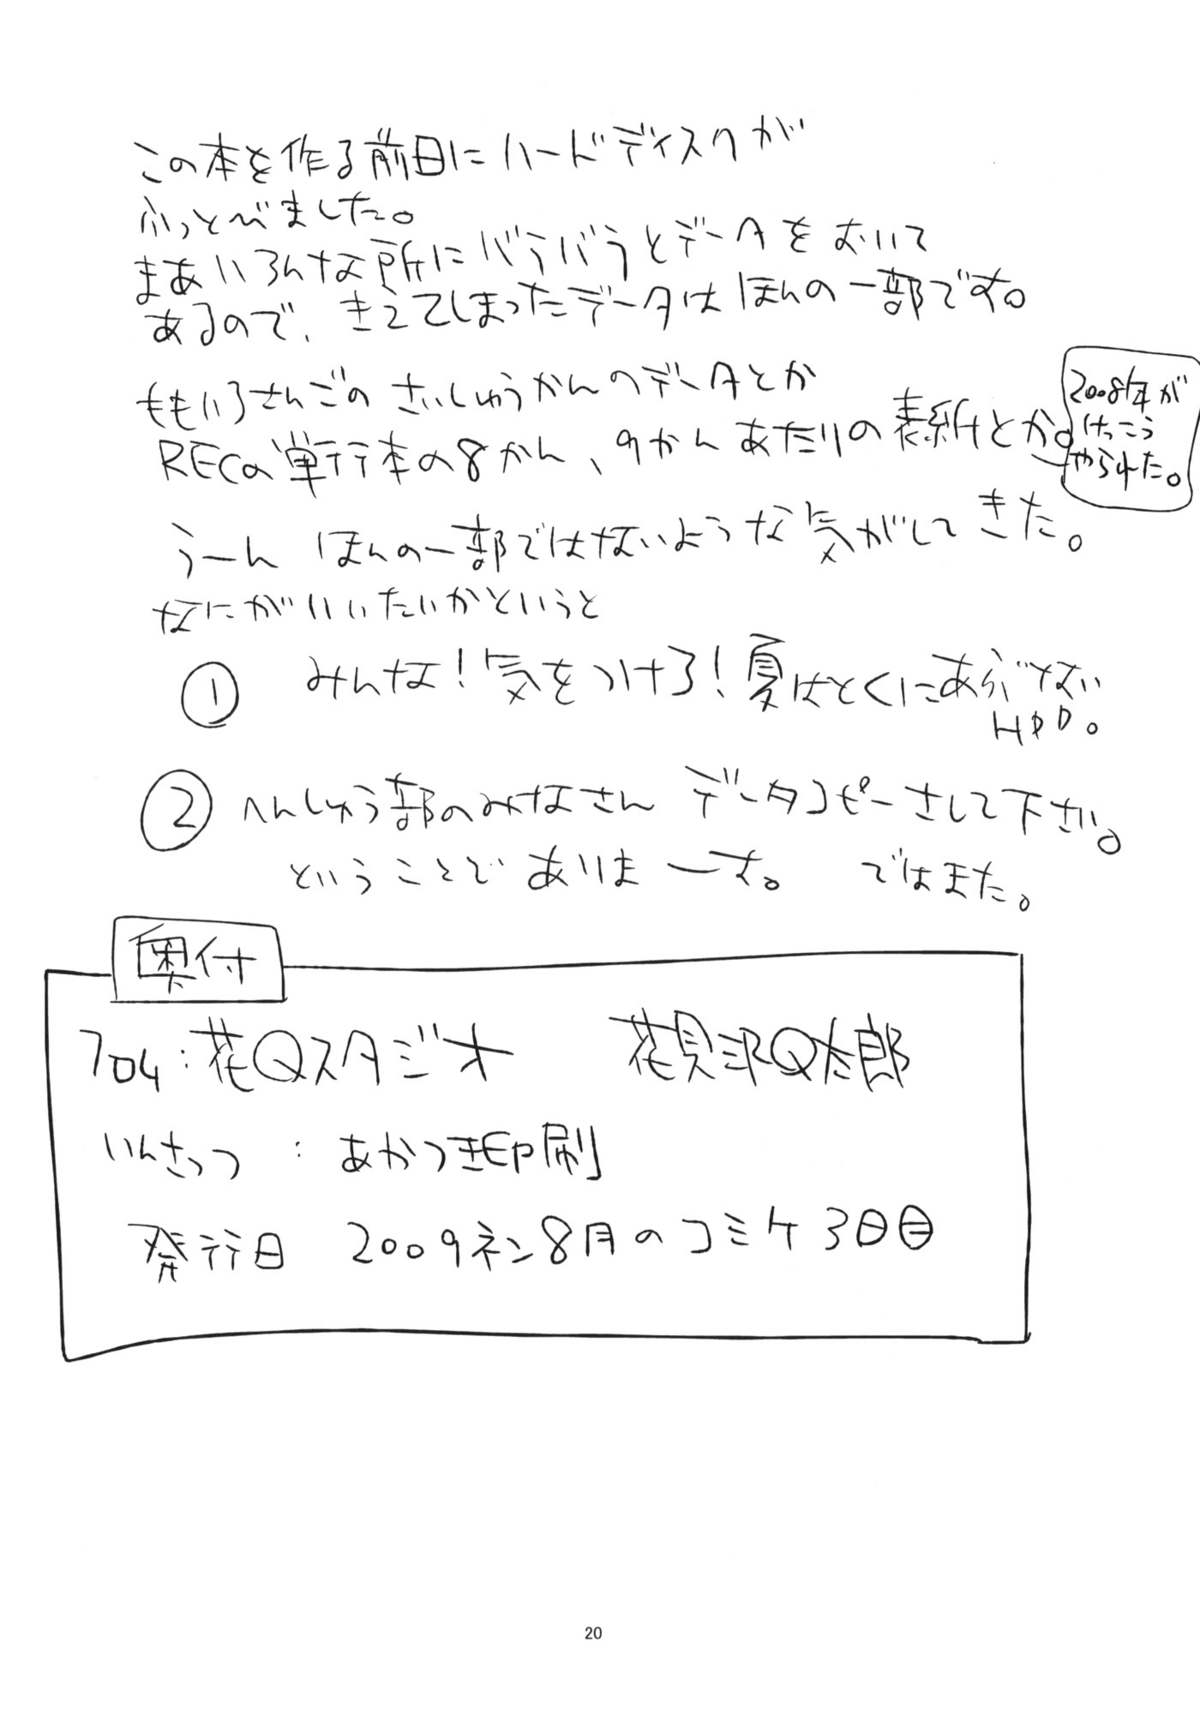 この本を作る前日にハードディスクが
ふっとべました。
まあいろんな所にバラバラとデータをおいて
あるので、きえてしまったデータはほんの一部です。
ももいろさんごのさいしゅうかんのデータとか
RECの単行本の8かん、9かんあたりの表紙とか。
2008年が
けっこう
やられた。
うーん ほんの一部ではないような気がしてきた。
なにがいいたいかというと
① みんな！気をつけろ！夏はとくにあぶない
HDD。
② へんしゅう部のみなさん データコピーさして下さい。
ということでありまーす。 ではまた。
奥付
704：花Qスタジオ 花見沢Q太郎
いんさつ：あかつき印刷
発行日 2009ネン8月のコミケ3日目
20